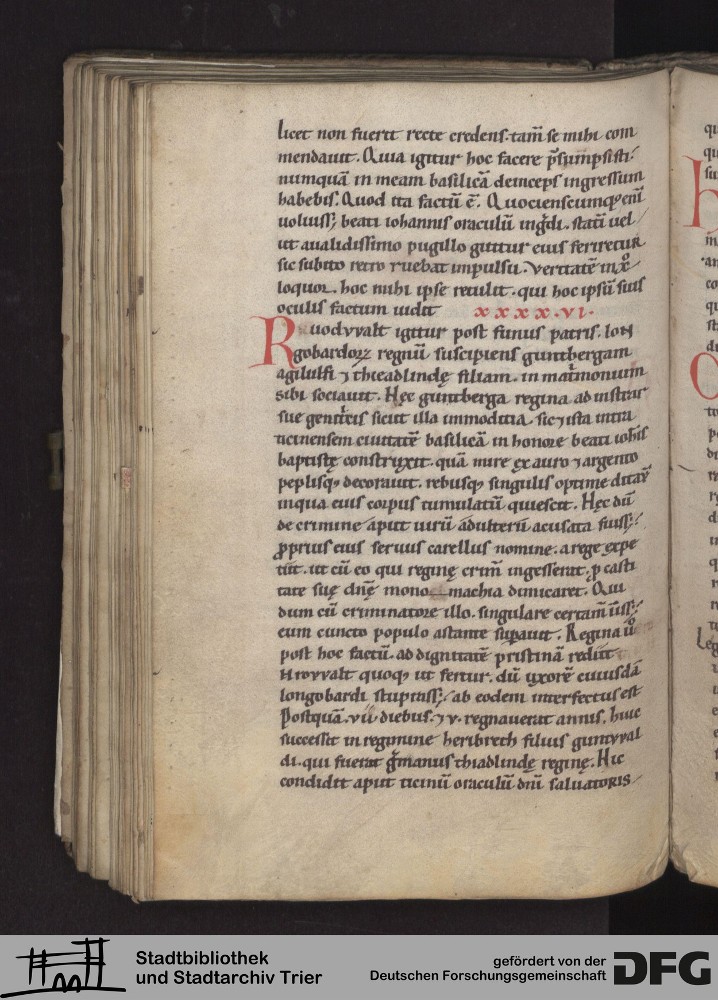 licet non fuerit recte credens. tam̄ se mihi com
mendauit. Quia igitur hoc facere p̄sumpsisti.
numquā in meam basilicā deinceps ingressum
habebis. Quod ita factū ē. Quocienscumq; eni
uoluiss; beati iohannis oraculū ingr̄di. stati uel
ut aualidissimo pugillo guttur eius feriretur
sic subito retro ruebat impulsu. Veritatē in xp̄o
loquor. hoc mihi ipse retulit. qui hoc ipsū suis
oculis factum uidit xxxxvi.
Ruodvvalt igitur post funus patris. lon
gobardoꝝ regnū suscipiens guntbergam
agilulfi ⁊ thieadlindę filiam. in mat̄monium
sibi sociauit. Hęc guntberga regina ad instar
sue genit̄cis sicut illa in modicia. sic ⁊ ista intra
ticinensem ciuitatē basilicā in honore beati iohīs
baptistę construxit. quā mire ex auro ⁊ argento
peplisq; decorauit. rebusq; singulis optime ditaū
in qua eius corpus tumulatū quiescit. Hęc dū
de crimine aput uirū adulterii acusata fuiss;
ꝓprius eius seruus carellus nomine. a rege expe
tiit. ut cū eo qui reginę crim̄ ingesserat. ꝓ casti
tate suę dnę̄ monomachia dimicaret. Qui
dum cū criminatore illo. singulare certam̄ iniss;
eum cuncto populo astante sup̄auit. Regina ū
post hoc factū. ad dignitatē pristinā rediit
Hrovvalt quoq; ut fertur. dū uxorē cuiusdā
longobardi stuprass; ab eodem interfectus est
Postquā .vii. diebus. ⁊ v. regnauerat annis. huic
successit in regimine heribreth filius guntvval
di. qui fuerat gr̄manus thiadlindę reginę. Hic
condidit aput ticinū oraculū dni saluatoris
Stadtbibliothek
und Stadtarchiv Trier
gefördert von der
Deutschen Forschungsgemeinschaft
DFG